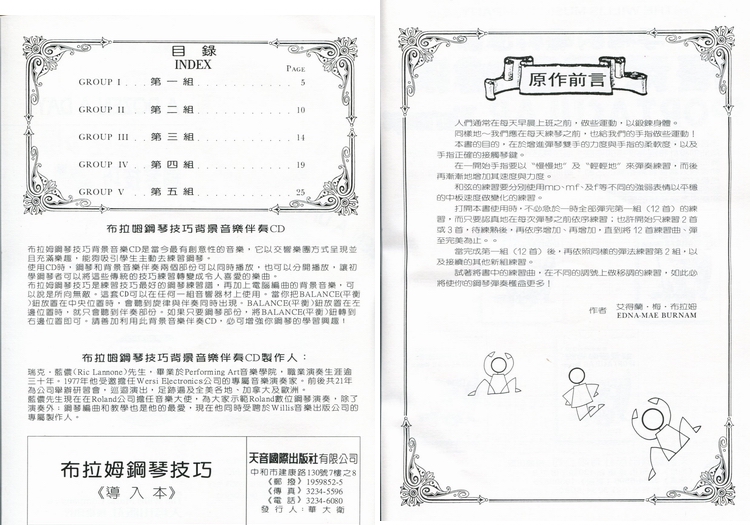 目錄
INDEX
PAGE
GROUP I . . . 第一組 . . . . . . . . . . . . . . 5
GROUP II . . . 第二組 . . . . . . . . . . . . . . 10
GROUP III . . . 第三組 . . . . . . . . . . . . . . 14
GROUP IV . . . 第四組 . . . . . . . . . . . . . . 19
GROUP V . . . 第五組 . . . . . . . . . . . . . . 25
布拉姆鋼琴技巧背景音樂伴奏CD
布拉姆鋼琴技巧背景音樂CD是當今最有創意性的音樂，它以交響樂團方式呈現並
且充滿樂趣，能夠吸引學生主動去練習鋼琴。
使用CD時，鋼琴和背景音樂伴奏兩個部份可以同時播放，也可以分開播放，讓初
學鋼琴者可以將這些傳統的技巧練習轉變成令人喜愛的樂曲。
布拉姆鋼琴技巧是練習技巧最好的鋼琴練習譜，再加上電腦編曲的背景音樂，可
以說是所向無敵。這套CD可以在任何一組音響器材上使用。當你把BALANCE(平衡
)鈕放置在中央位置時，會聽到旋律與伴奏同時出現。BALANCE(平衡)鈕放置在左
邊位置時，就只會聽到伴奏部份。如果只要鋼琴部份，將BALANCE(平衡)鈕轉到
右邊位置即可。請善加利用此背景音樂伴奏CD，必可增強你鋼琴的學習興趣！
布拉姆鋼琴技巧背景音樂伴奏CD製作人：
瑞克．藍儂(Ric Lannone)先生，畢業於Performing Art音樂學院，職業演奏生涯逾
三十年。1977年他受邀擔任Wersi Electronics公司的專屬音樂演奏家。前後共21年
為公司舉辦研習會，巡迴演出，足跡遍及全美各地、加拿大及歐洲。
藍儂先生現在在Roland公司擔任音樂大使，為大家示範Roland數位鋼琴演奏，除了
演奏外；鋼琴編曲和教學也是他的最愛，現在他同時受聘於Willis音樂出版公司的
專屬製作人。
布拉姆鋼琴技巧
《導入本》
天音國際出版社有限公司
中和市建康路130號7樓之8
《郵撥》1959852-5
《傳真》3234-5596
《電話》3234-6080
發行人：華大衛
原作前言
人們通常在每天早晨上班之前，做些運動，以鍛鍊身體。
同樣地～我們應在每天練琴之前，也給我們的手指做些運動！
本書的目的，在於增進彈琴雙手的力度與手指的柔軟度，以及
手指正確的接觸琴鍵。
在一開始手指要以“慢慢地”及“輕輕地”來彈奏練習，而後
再漸漸地增加其速度與力度。
和弦的練習要分別使用mp、mf、及f等不同的強弱表情以平穩
的中板速度做變化的練習。
打開本書使用時，不必急於一時全部彈完第一組（12首）的練
習，而只要認真地在每次彈琴之前依序練習；也許開始只練習2首
或3首，待練熟後，再依序增加、再增加，直到將12首練習曲、彈
至完美為止。。
當完成第一組（12首）後，再依照同樣的彈法練習第2組，以
及接續的其他新組練習。
試著將書中的練習曲，在不同的調號上做移調的練習，如此必
將使你的鋼琴彈奏穫益更多！
作者 艾得蘭．梅．布拉姆
EDNA-MAE BURNAM